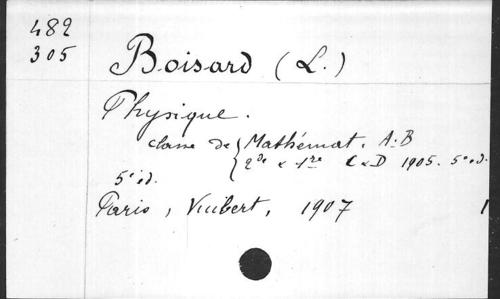 482
305
Boisard (L.)
Physique.
classe de { Mathémat. A.B
2de & 1re C & D 1905. 5e éd.
5e éd.
Paris, Vuibert, 1907
1